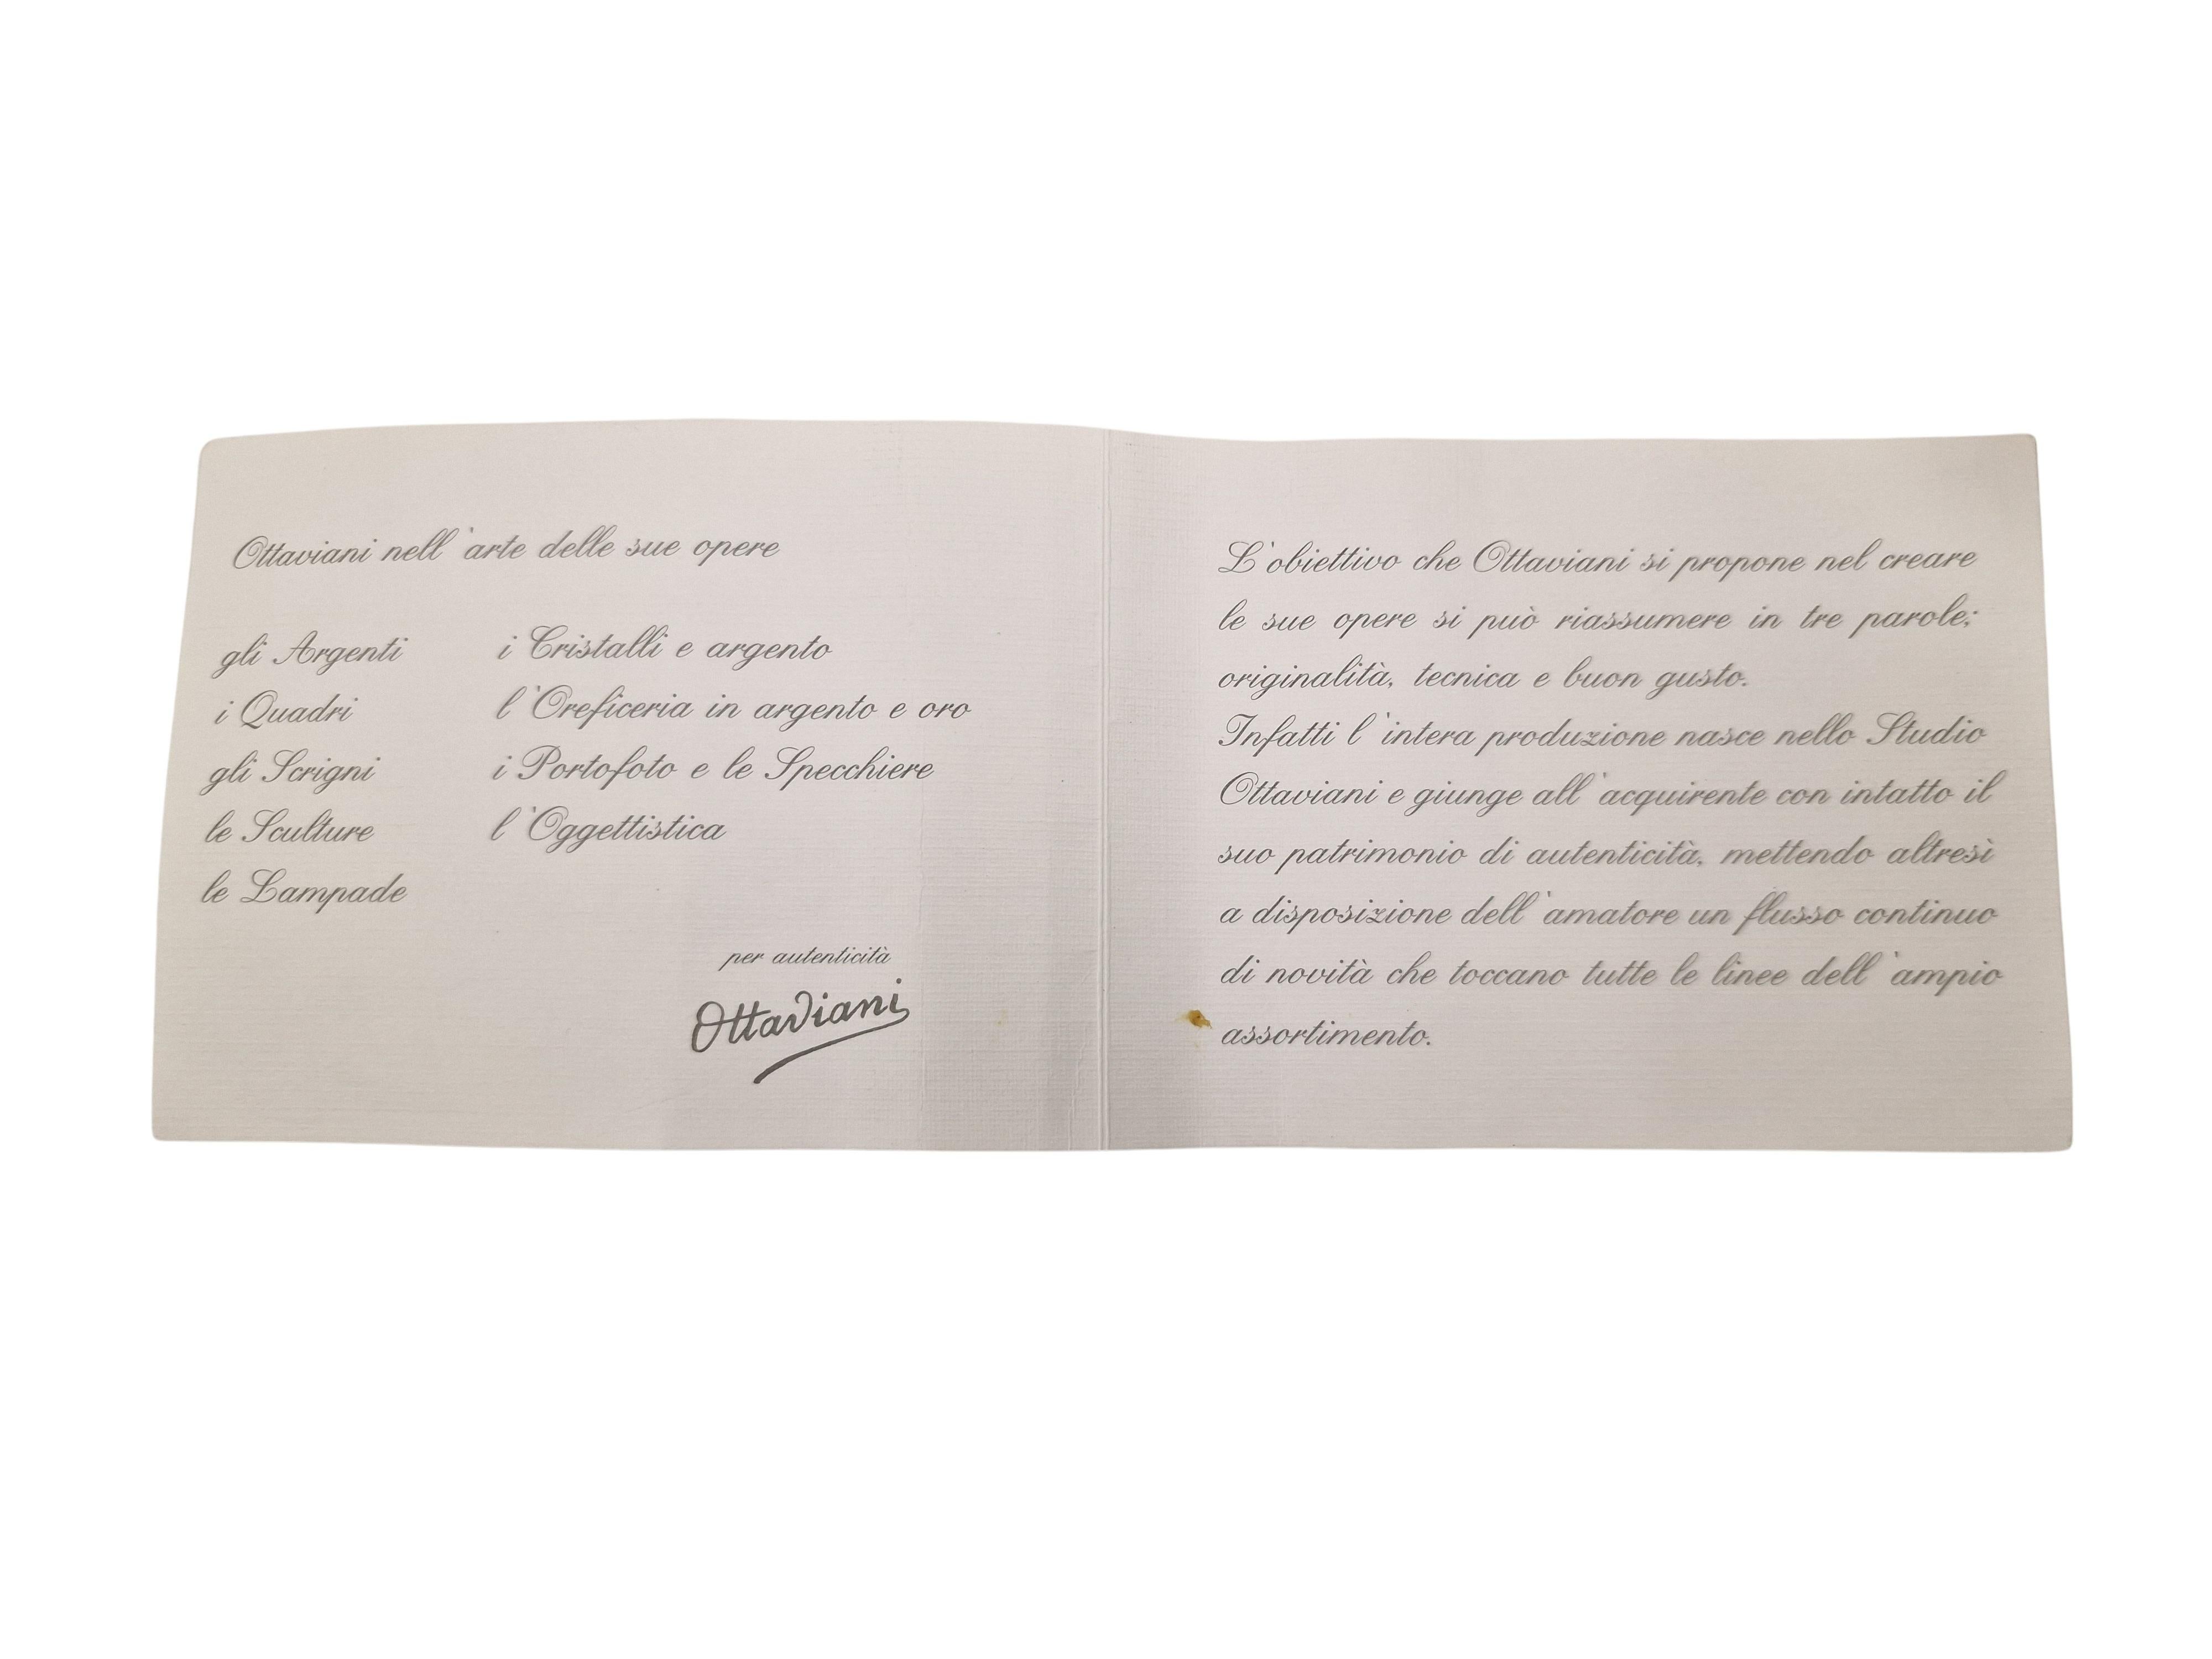 Ottaviani nell'arte delle sue opere
gli Argenti
i Quadri
gli Scrigni
le Sculture
le Lampade
i Cristalli e argento
l'Oreficeria in argento e oro
i Portofoto e le Specchiere
l'Oggettistica
per autenticità
Ottaviani
L'obiettivo che Ottaviani si propone nel creare
le sue opere si può riassumere in tre parole:
originalità, tecnica e buon gusto.
Infatti l'intera produzione nasce nello Studio
Ottaviani e giunge all'acquirente con intatto il
suo patrimonio di autenticità, mettendo altresì
a disposizione dell'amatore un flusso continuo
di novità che toccano tutte le linee dell'ampio
assortimento.